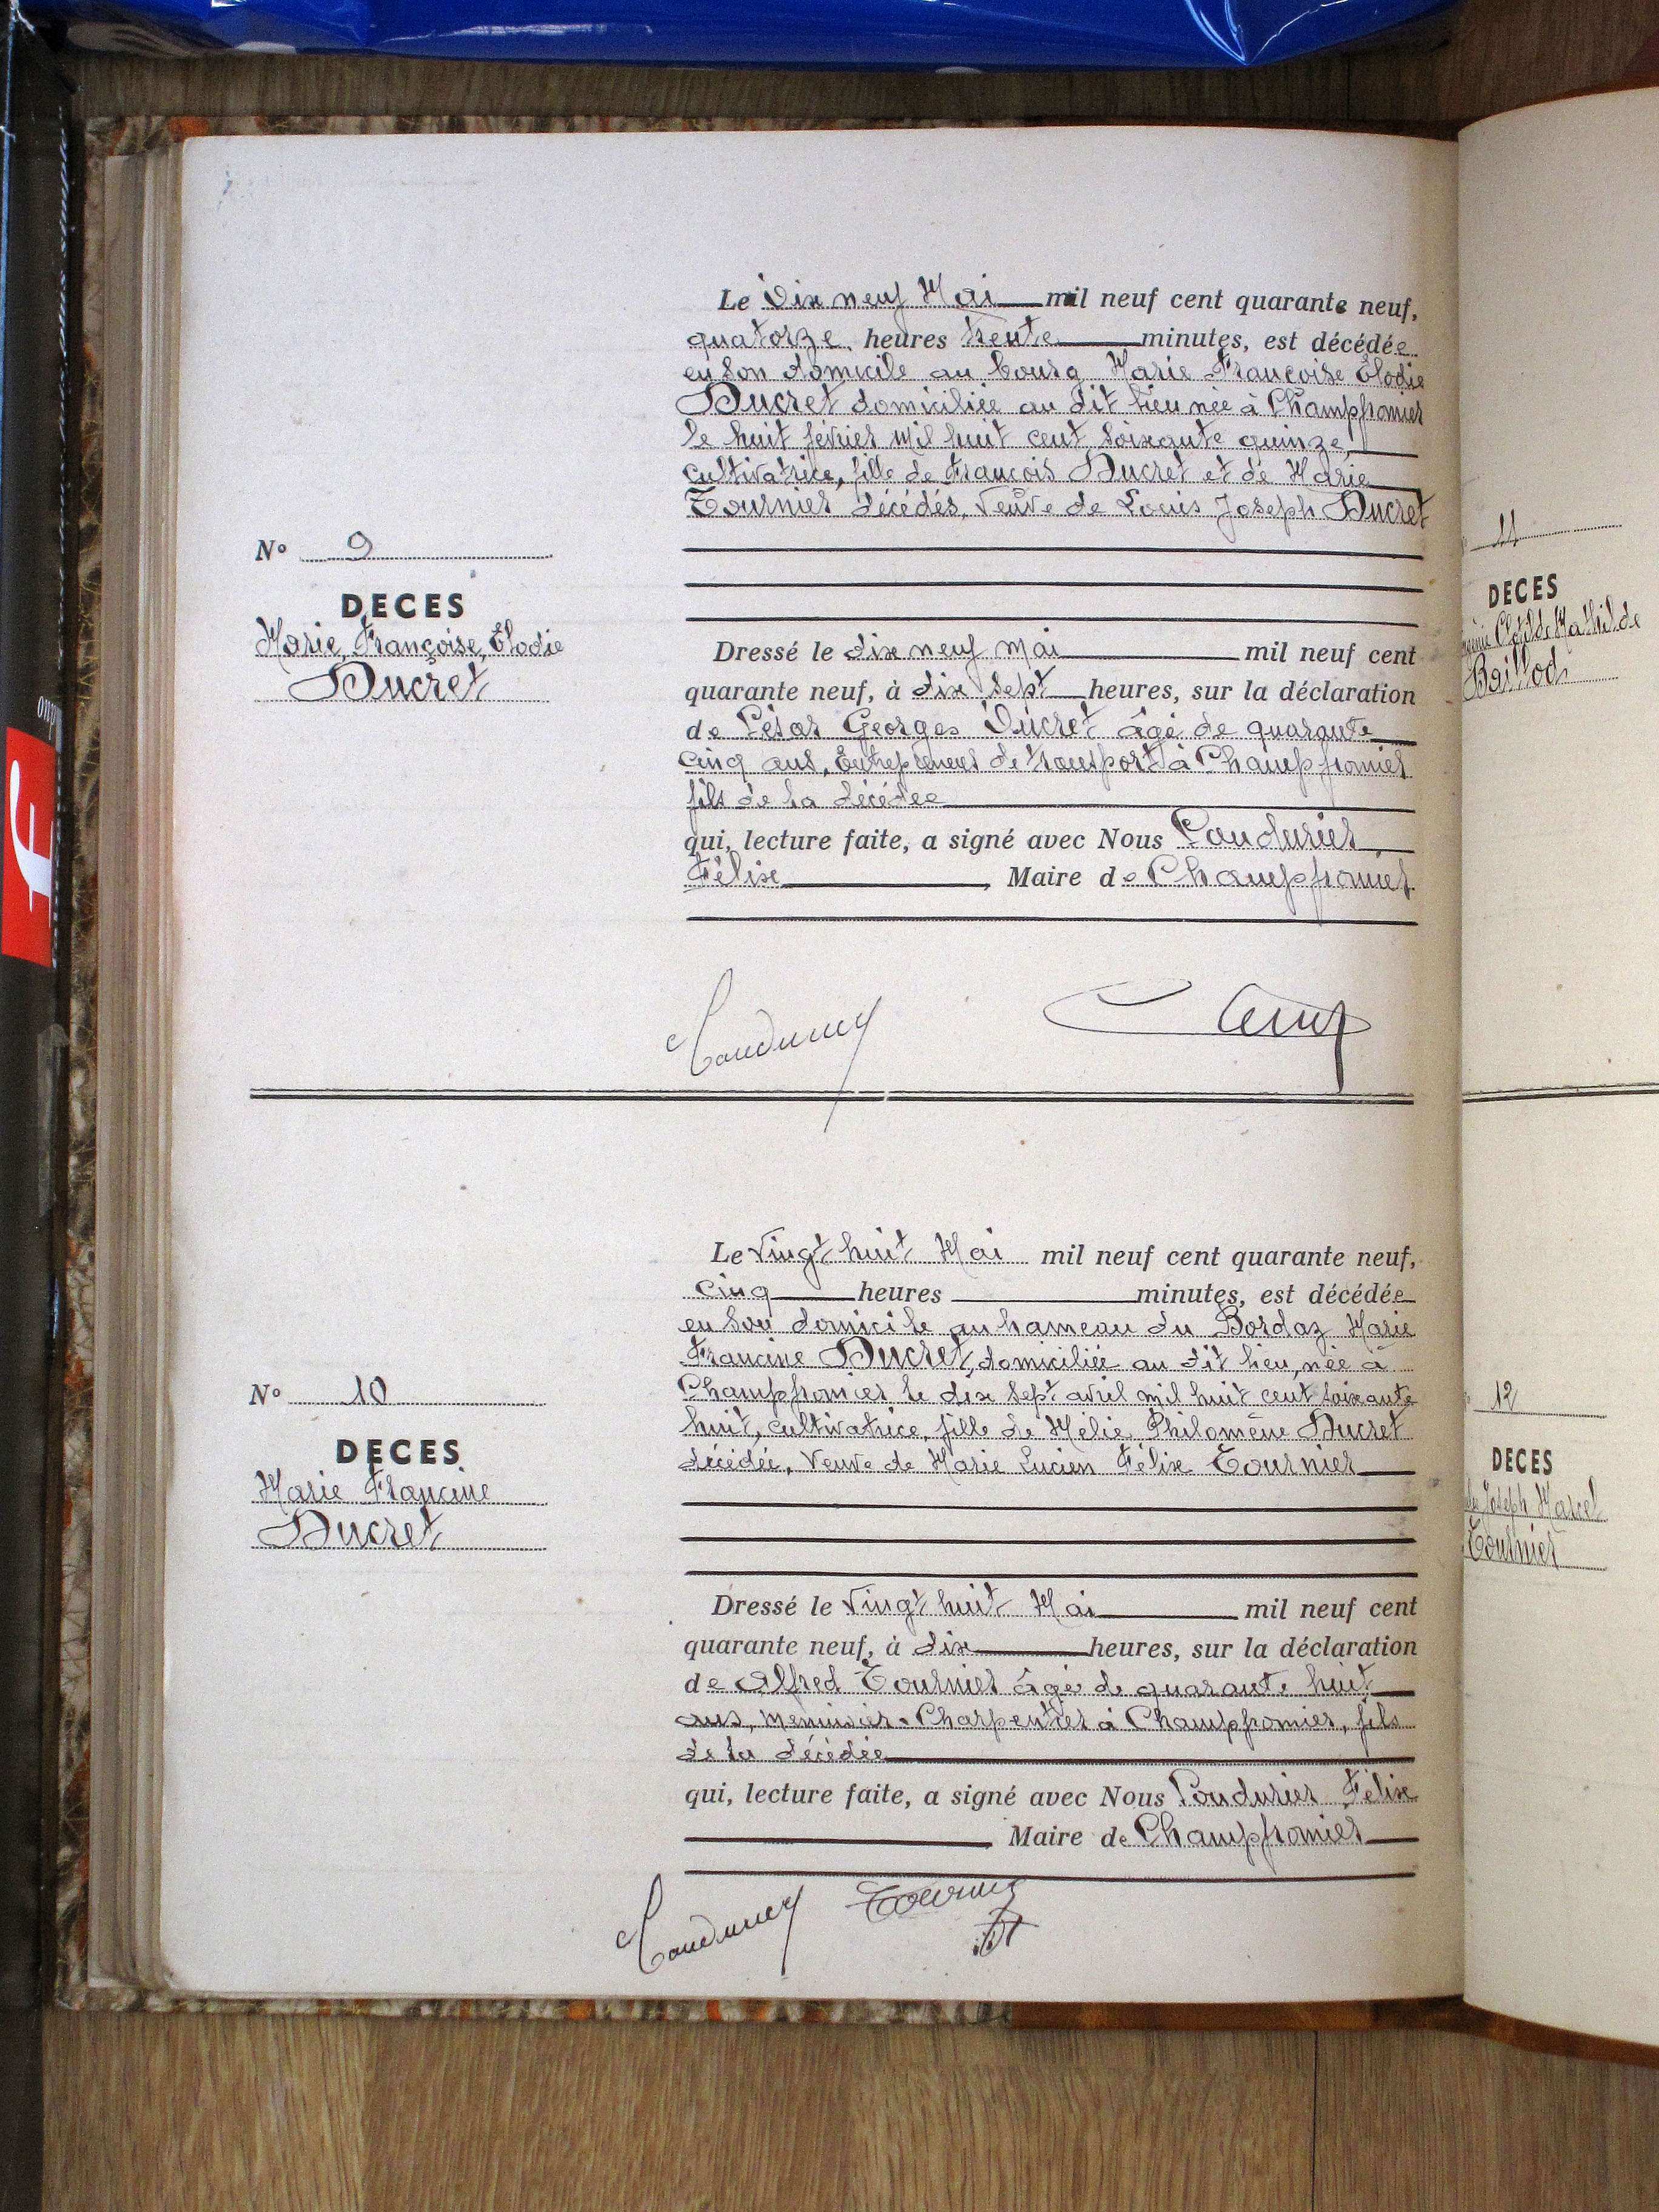 Le Dix neuf Mai mil neuf cent quarante neuf,
quatorze heures trente minutes, est décédée
en son domicile au bourg Marie Françoise Élodie
Ducret domiciliée au dit lieu née à Champfromier
le huit février mil huit cent soixante quinze,
cultivatrice, fille de François Ducret et de Marie
Tournier décédés, Veuve de Louis Joseph Ducret
N° 9
DECES
Marie, Françoise, Élodie
Ducret
Dressé le dix neuf mai mil neuf cent
quarante neuf, à dix sept heures, sur la déclaration
de César Georges Ducret âgé de quarante
cinq ans, Entrepreneur de transport à Champfromier
fils de la décédée
qui, lecture faite, a signé avec Nous Coudurier
Félix, Maire de Champfromier
Coudurier
Le Vingt huit Mai mil neuf cent quarante neuf,
cinq heures minutes, est décédée
en son domicile au hameau du Bordaz Marie
Francine Ducret, domiciliée au dit lieu, née à
Champfromier le dix sept avril mil huit cent soixante
huit, cultivatrice, fille de Mélie Philomène Ducret
décédée, Veuve de Marie Lucien Félix Tournier
N° 10
DECES
Marie Francine
Ducret
Dressé le Vingt huit Mai mil neuf cent
quarante neuf, à dix heures, sur la déclaration
de Alfred Tournier âgé de quarante huit
ans, menuisier-Charpentier à Champfromier, fils
de la décédée
qui, lecture faite, a signé avec Nous Coudurier Félix
, Maire de Champfromier
Coudurier Tournier
11
DECES
Clotilde Mathilde
Baillod
12
DECES
Joseph Marcel
Tournier